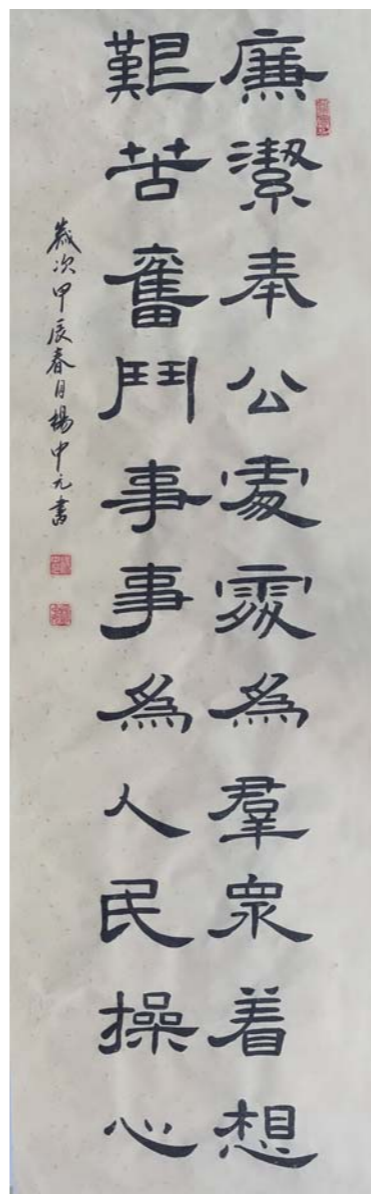 廉潔奉公處處為羣衆着想
艱苦奮鬥事事為人民操心
歲次甲辰春日楊中元書